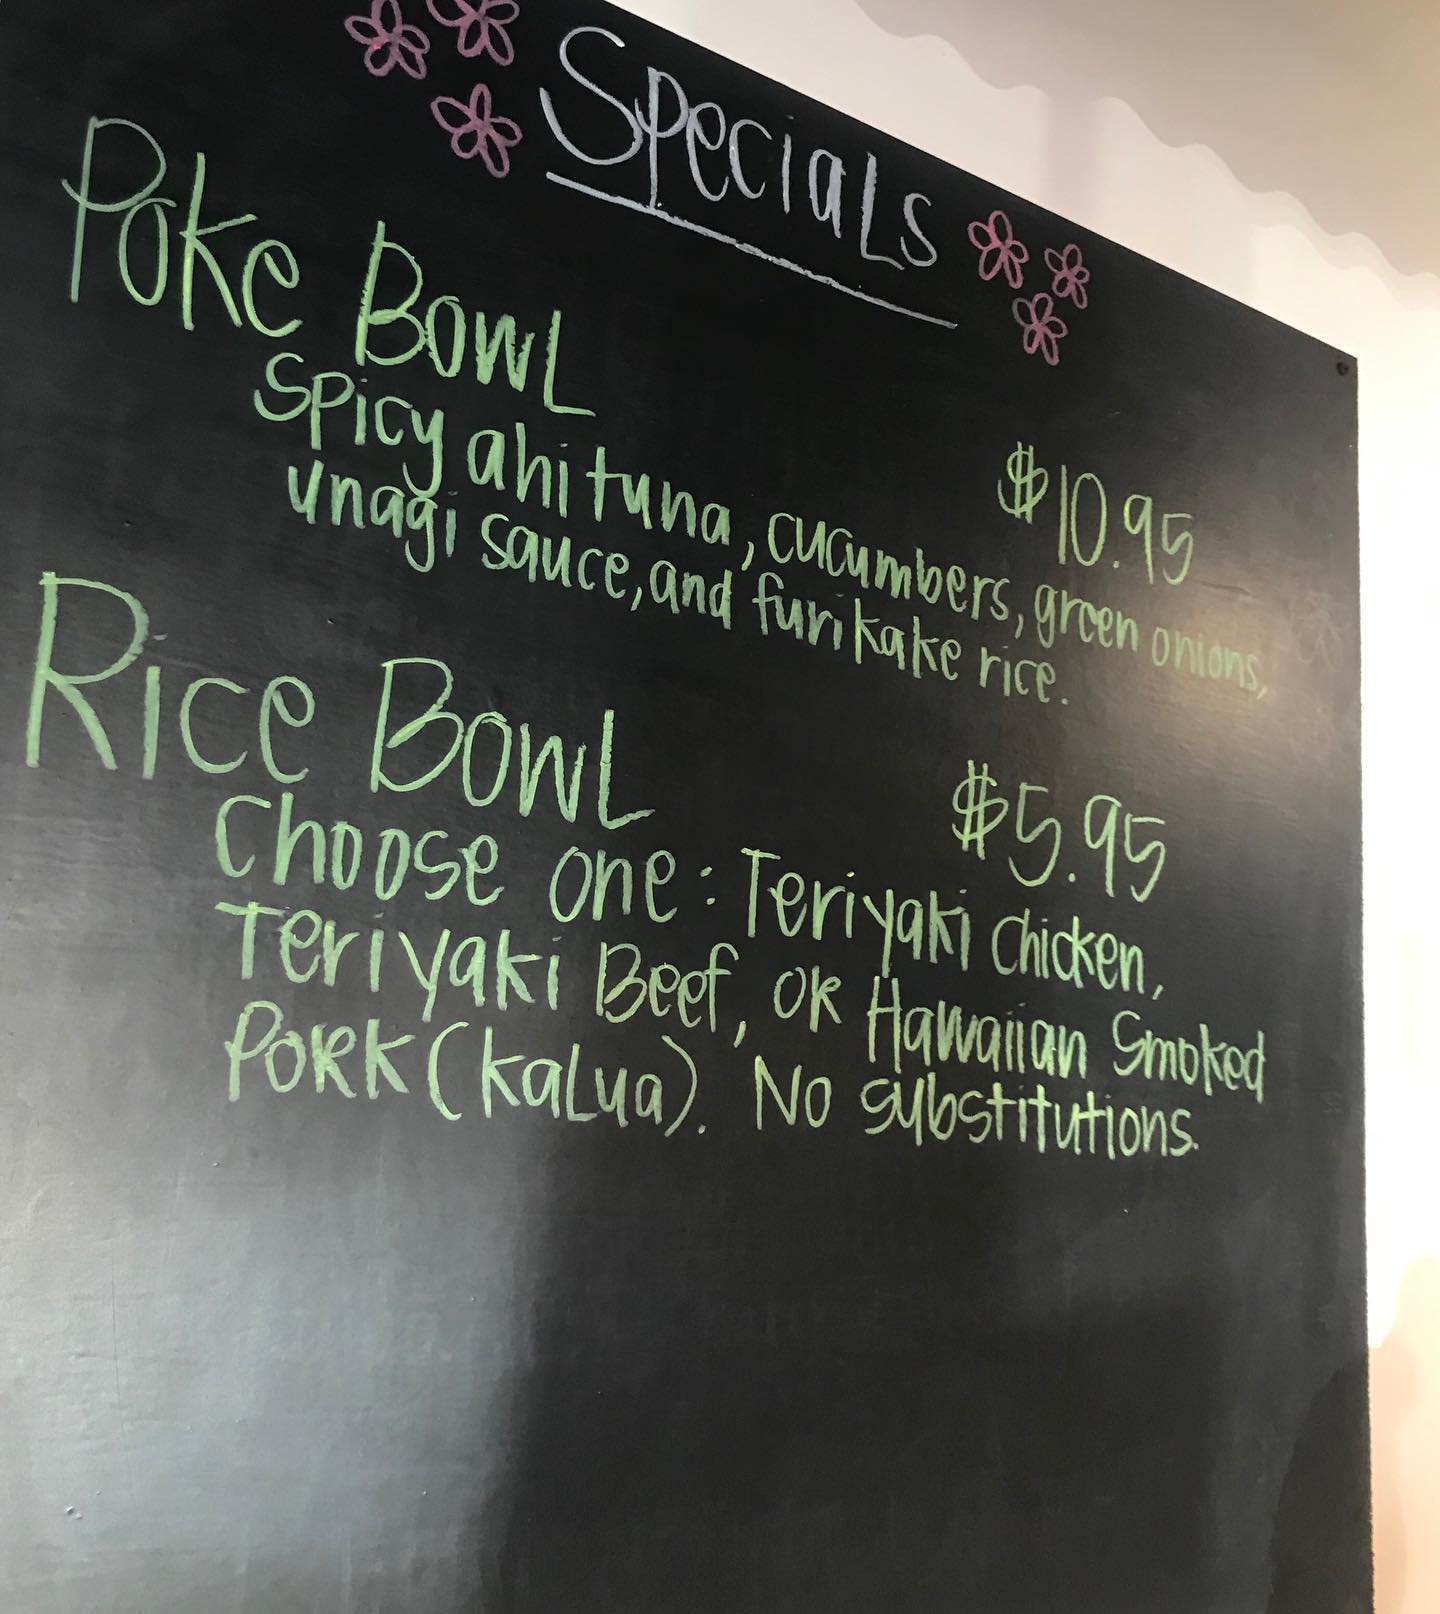 Specials
Poke Bowl
$10.95
Spicy ahi tuna, cucumbers, green onions,
unagi sauce, and furikake rice.
Rice Bowl
$5.95
Choose one: Teriyaki Chicken,
Teriyaki Beef, or Hawaiian Smoked
Pork (kalua). No substitutions.